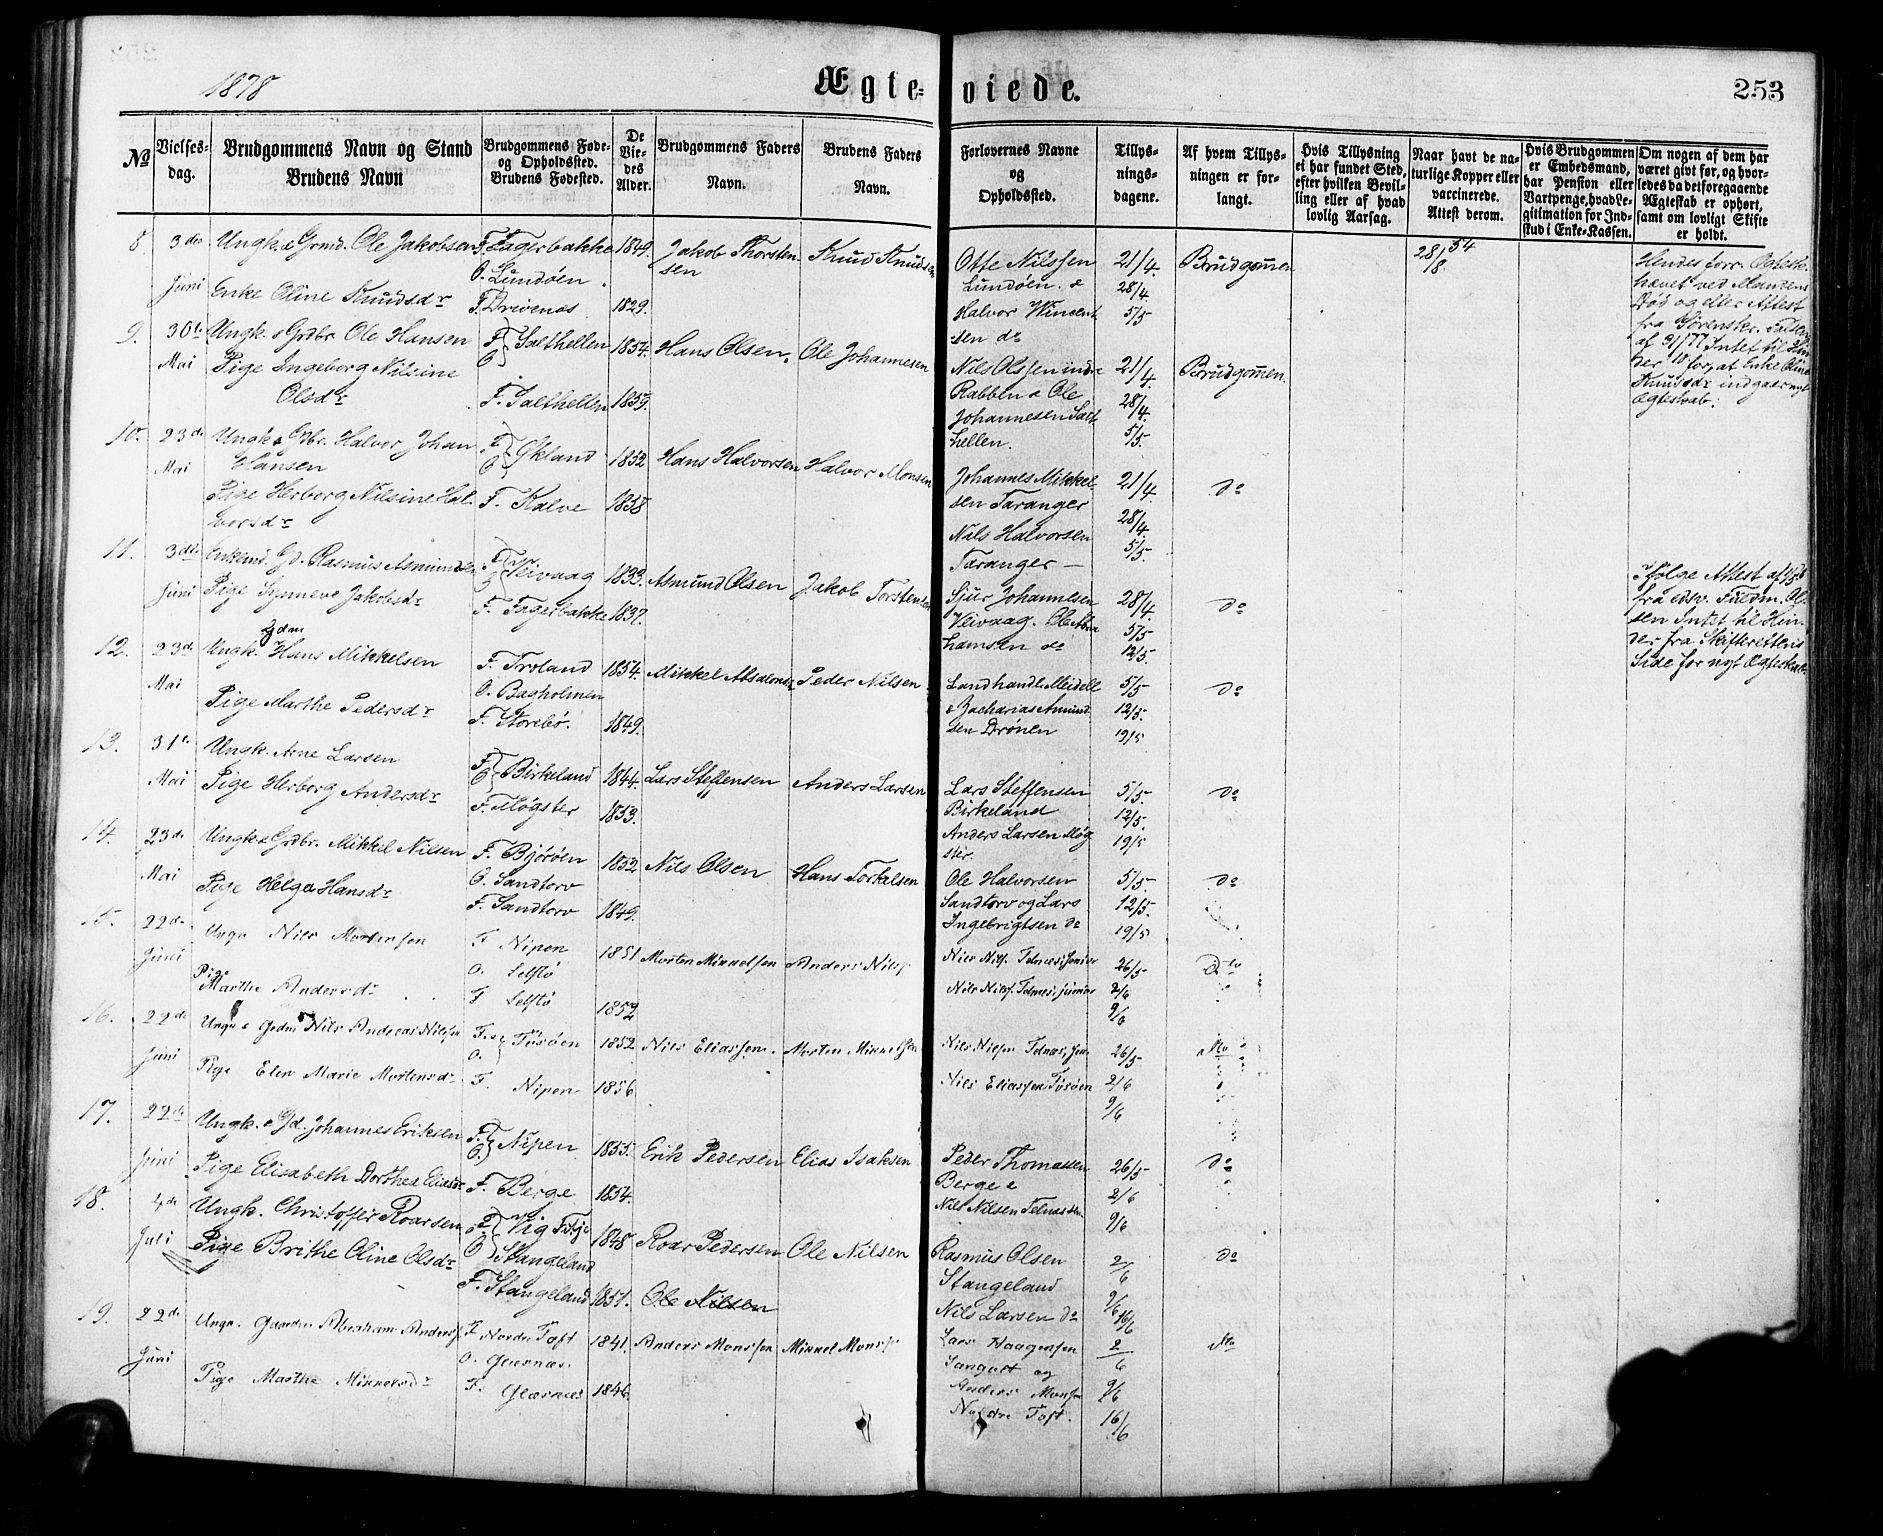 1878
Ægte-viede.
253
№
Vielses-
dag.
Brudgommens Navn og Stand
Brudens Navn
Brudgommens Føde-
og Opholdssted.
Brudens Fødested.
De
Vie-
des
Alder.
Brudgommens Faders
Navn.
Brudens Faders
Navn.
Forlovernes Navne
og
Opholdssted.
Tillys-
nings-
dagene.
Af hvem Tillys-
ningen er for-
langt.
Hvis Tillysning
ei har fundet Sted,
efter hvilken Bevil-
ling eller af hvad
lovlig Aarsag.
Naar havt de na-
turlige Kopper eller
vaccinerede.
Attest derom.
Hvis Brudgommen
er Embedsmand,
har Pension eller
Vartpenge, hvad Le-
gitimation for Ind-
skud i Enke-Kassen.
Om nogen af dem har
været givt før, og hvor-
ledes da det foregaaende
Ægteskab er ophørt,
samt om lovligt Skifte
er holdt.
8 3die Juni
Ungk. & Grmd. Ole Jakobsen
Enke Oline Knudsdr
F. Fagerbakke
O. Lundøen.
F. Drivenæs
1849.
1829.
Jakob Thorsten-
sen
Knud Knudsen
Otte Nilssen
Lundøen. &
Halvor Wincent
sen do
21/4.
28/4
5/5
Brudgommen
28/8 54
Hendes forr. Ægtesk.
hævet ved Mandens
Død og efter Attest
fra Sorenskr.
af 9/1 77 Intet til Hin
der for, at Enke Oline
Knudsdr indgaar nyt
Ægteskab.
9. 30te Mai
Ungk. & Grdbr. Ole Hansen
Pige Ingeborg Nilsine
Olsdr
F. O. Salthellen
F. Salthellen
1854.
1859.
Hans Olsen.
Ole Johannesen
Nils Olssen indre
Rabben & Ole
Johannesen Salt
hellen.
21/4.
28/4.
5/5.
Brudgommen.
10. 23de Mai
Ungk. & Grbr. Halvor Johan
Hansen
Pige Herborg Nilsine Hal-
vorsdr
F. O. Økland
F. Kalve
1852
1858
Hans Halvorsen
Halvor Monsen
Johannes Mikkel-
sen Taranger
Nils Halvorsen
Taranger —
21/4.
28/4
5/5.
do
11. 3die Juni
Enkemd. Gd. Rasmus Asmundsen
Pige Synneve Jakobsdr
F. O. Veivaag
F. Fagerbakke
1833.
1837.
Asmund Olsen
Jakob Torstensen
Sjur Johannesen
Veivaag. Ole Abra
hamsen do
28/4.
5/5
12/5.
do
Ifølge Attest af
fra edsv. Fuldm. Ol-
sen Intet til Hin-
der fra Skifterettens
Side for nyt Ægteskab.
12. 23de Mai
Ungk. Hans Mikkelsen
Pige Marthe Pedersdr
F. Troland
O. Bagholmen
F. Storebø.
1854.
1849.
Mikkel Absalonsen
Peder Nilsen.
Landhandl. Meidell
& Zacharias Amund
sen Drönen
5/5
12/5.
19/5
do
13. 31te Mai
Ungk. Arne Larsen
Pige Herborg Andersdr
F. O. Birkeland
F. Møgster
1844.
1853.
Lars Steffensen
Anders Larsen
Lars Steffensen
Birkeland
Anders Larsen Møg
ster.
5/5.
12/5.
19/5
do
14. 23de Mai
Ungk. & Grdbr. Mikkel Nilsen
Pige Helga Hansdr
F. Bjørøen
O. Sandtorv
F. Sandtorv
1852
1849.
Nils Olsen
Hans Torkelsen
Ole Halvorsen
Sandtorv og Lars
Ingebrigtsen do
5/5.
12/5.
19/5
do
15. 22de Juni
Ungk Nils Mortensen
Pige
Marthe Andersdr
F Nipen
O. Selstø
F Selstø
1851
1852
Morten Mikkelsen
Anders Nils.
Nils Nils. Telnæs, senior
Nils Nils. Telnæs, junior
26/5
2/6
9/6
Dto
16. 22de Juni
Ungk & Grdm Nils Andreas Nilsen
Pige Elen Marie Mortensdr
F. O. Tøsøen
F. Nipen
1852
1856
Nils Eliassen.
Morten Mikkelsen
Nils Nilsen Telnæs, sen.
Nils Eliassen Tøsøen
26/5
2/6
9/6
dto
17. 22de Juni
Ungk. & Gd. Johannes Eriksen
Pige Elisabeth Dorthea Eliasdr
F. O. Nipen
F. Berge
1855.
1854.
Erik Pedersen
Elias Isaksen
Peder Thomassen
Berge &
Nils Nilsen Telnæs sen.
26/5
2/6
9/6
do
18. 4de Juli
Ungk. Christoffer Roarsen
Pige Brithe Oline Olsdr
F. Vig Fitje
O Stangeland
F. Stangeland
1848
1851.
Roar Pedersen
Ole Nilsen
Ole Nilsen
Rasmus Olsen
Stangeland
Nils Larsen do
2/6
9/6
16/6
do
19. 22de Juni
Ungk. Gaardm Abraham Anders.
Pige Marthe Mikkelsdr
F Nordre Toft
O. Glesnæs.
F. Glesnæs
1841.
1846
Anders Monssen
Mikkel Mons.
Lars Haagensen
Sangolt og
Anders Monsen
Nordre Toft.
2/6
9/6
16/6
dto